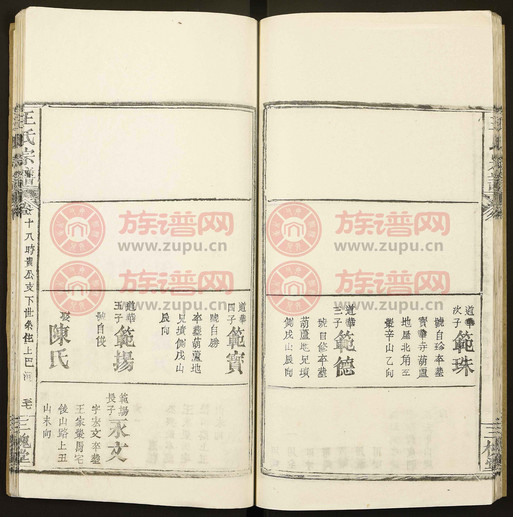 道華
次子
範珠
號自珍卒葬
寶華寺葫蘆
地屋北角三
辛山乙向
道華
三子
範德
號自修卒葬
葫蘆地兄墳
側戌山辰向
道華
四子
範寶
號自勝
卒葬葫蘆地
兄墳側戌山
辰向
道華
五子
範揚
號自俊
娶
陳氏
範揚
長子
永文
字宏文卒葬
王家榮周宅
後山路上丑
山未向
王氏宗譜
卷十八時貴公支下世系住上巴河
三槐堂
族谱网
www.zupu.cn
族谱网
www.zupu.cn
族谱网
www.zupu.cn
族谱网
www.zupu.cn